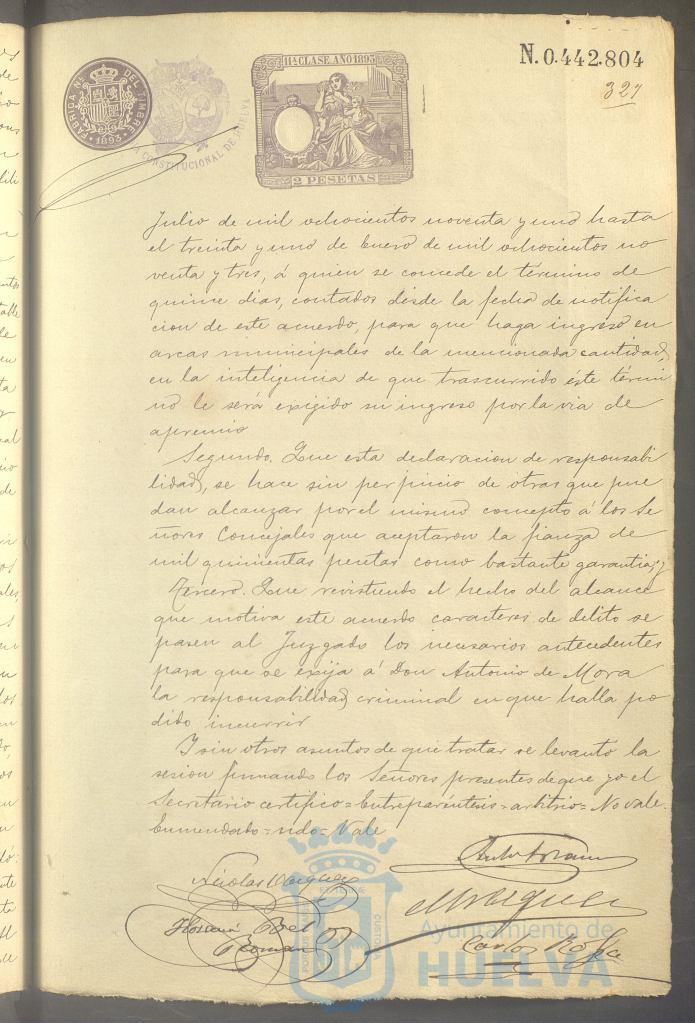 FABRICA Nª DEL TIMBRE
1893
CONSTITUCIONAL DE HUELVA
11ª CLASE. AÑO 1893
2 PESETAS
N.0.442.804
327
Julio de mil ochocientos noventa y uno hasta
el treinta y uno de Enero de mil ochocientos no
venta y tres, á quien se concede el término de
quince dias, contados desde la fecha de notifica
cion de este acuerdo, para que haga ingreso en
arcas municipales de la mencionada cantidad,
en la inteligencia de que trascurrido éste térmi
no le será exigido su ingreso por la via de
apremio
Segundo. Que esta declaracion de responsabi
lidad, se hace sin perjuicio de otras que pue
dan alcanzar por el mismo concepto á los Se
ñores Concejales que aceptaron la fianza de
mil quinientas pesetas como bastante garantia; y
Tercero. Que revistiendo el hecho del alcance
que motiva este acuerdo caracteres de delito se
pasen al Juzgado los necesarios antecedentes
para que se exija á Don Antonio de Mora
la responsabilidad criminal en que halla po
dido incurrir
Y sin otros asuntos de que tratar se levantó la
sesion firmando los Señores presentes de que yo el
Secretario certifico = Entreparéntesis = arbitrio = No vale.
Enmendado = ndo = Vale
Nicolas Vazquez
Carlos
Roman
Ayuntamiento de
HUELVA